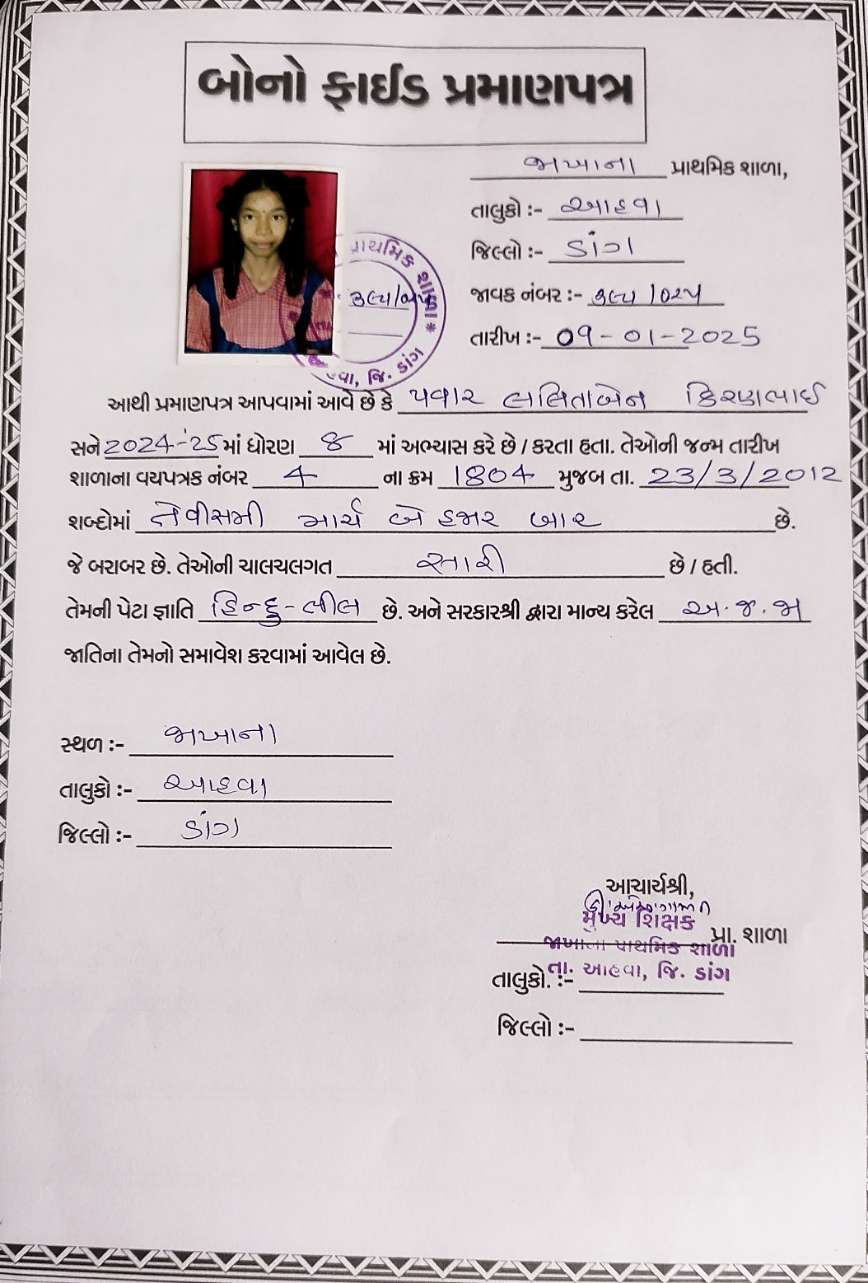 બોનો ફાઈડ પ્રમાણપત્ર
જાખાના પ્રાથમિક શાળા,
તાલુકો :- આહવા
જિલ્લો :- ડાંગ
જાવક નંબર :-
તારીખ :- 09-01-2025
પ્રાથમિક શાળા *
આહવા, જિ. ડાંગ
આથી પ્રમાણપત્ર આપવામાં આવે છે કે પવાર લલિતાબેન કિરણભાઈ
સને 2024-'25 માં ધોરણ 8 માં અભ્યાસ કરે છે / કરતા હતા. તેઓની જન્મ તારીખ
શાળાના વયપત્રક નંબર 4 ના ક્રમ 1804 મુજબ તા. 23/3/2012
શબ્દોમાં ત્રેવીસમી માર્ચ બે હજાર બાર છે.
જે બરાબર છે. તેઓની ચાલચલગત સારી છે / હતી.
તેમની પેટા જ્ઞાતિ હિન્દુ-ભીલ છે. અને સરકારશ્રી દ્વારા માન્ય કરેલ અ.જ.જા
જાતિના તેમનો સમાવેશ કરવામાં આવેલ છે.
સ્થળ :- જાખાના
તાલુકો :- આહવા
જિલ્લો :- ડાંગ
આચાર્યશ્રી,
મુખ્ય શિક્ષક
પ્રા. શાળા
જાખાના પ્રાથમિક શાળા
તા. આહવા, જિ. ડાંગ
તાલુકો. :-
જિલ્લો :-